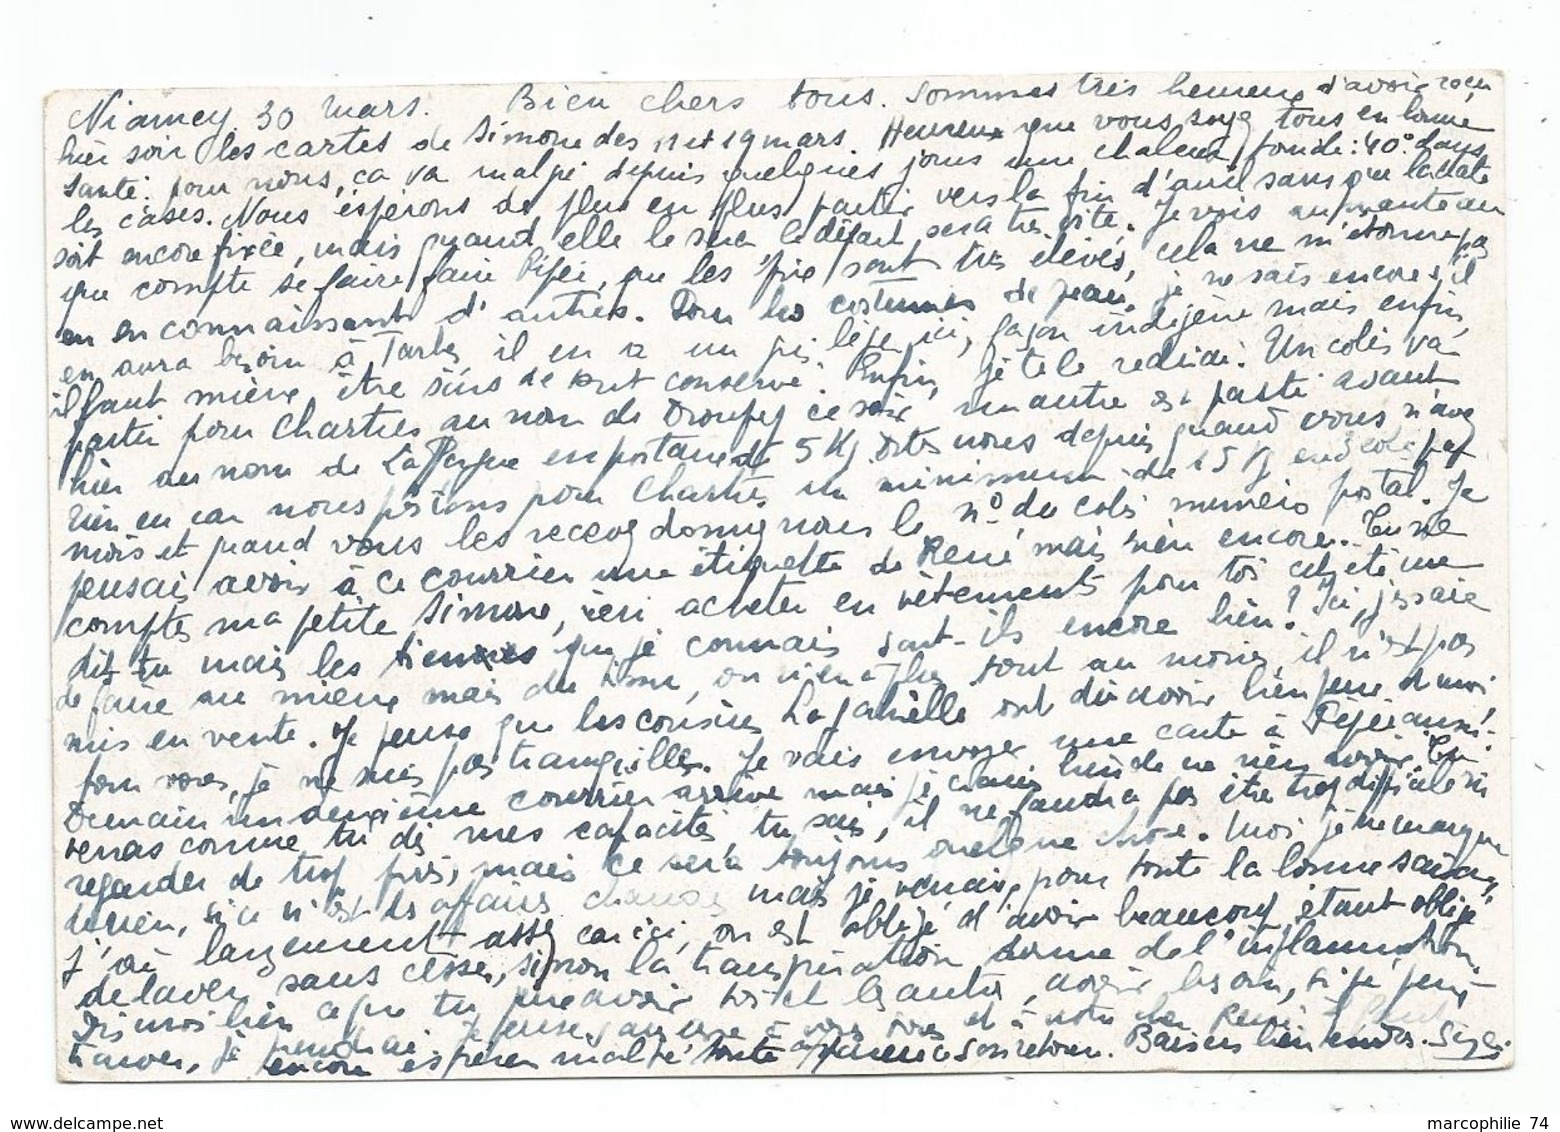 Niamey 30 mars. Bien chers tous. Sommes très heureux d'avoir reçu
hier soir les cartes de Simone des 11 et 19 mars. Heureux que vous soyez tous en bonne
santé. pour nous, ça va malgré depuis quelques jours une chaleur, fonde: 40° dans
les cases. Nous espérons de plus en plus partir vers la fin d'avril sans que la date
soit encore fixée, mais quand elle le sera le départ sera très vite. Je vois un manteau
que compte se faire faire Pépée, que les prix sont très élevés, cela ne m'étonne pas
en en connaissant d'autres. Pour les costumes de peau, je ne sais encore s'il
en aura besoin à Tarbes il en a un léger ici, façon indigène mais enfin,
il faut mieux être sûrs de tout conserver. Enfin, je te le redirai. Un colis va
partir pour Chartres au nom de ce soir, un autre est parti avant
hier au nom de emportant 5 Kg. Dites nous depuis quand vous n'avez
rien eu car nous pour Chartres un minimum de 15 Kg en 3 colis par
mois et quand vous les recevez donnez nous le n° du colis numéro postal. Je
pensais avoir à ce courrier une étiquette de René mais rien encore. Tu ne
comptes ma petite Simone, rien acheter en vêtements pour toi cet été me
dis tu mais les tiennes que je connais sont-ils encore bien? Ici, j'essaie
de faire au mieux mais du tissu, on n'en a plus tout au moins, il n'est pas
mis en vente. Je pense que les cousins Lagabrielle ont dû avoir bien peur et moi
pour vous, je ne suis pas tranquille. Je vais envoyer une carte à Pépée aussi.
Demain un deuxième courrier arrive mais je crains bien de ne rien avoir. Tu
verras comme tu dis mes capacités tu sais, il ne faudra pas être trop difficile ni
regarder de trop près, mais ce sera toujours quelque chose. Moi je ne manque
de rien, si ce n'est des affaires chaudes mais je venais, pour toute la bonne saison,
j'ai largement assez car ici, on est obligé d'avoir beaucoup, étant obligé
de laver sans cesse, sinon la transpiration donne de l'inflammation.
Dis moi bien ce que tu peux avoir toi et les autres, avoir besoin, si je peux
trouver, je prendrai. Je pense sans cesse à vous tous et à notre cher René il faut
encore espérer malgré toute à son retour. Baisers bien tendres. Suzie
www.delcampe.net
marcophilie 74